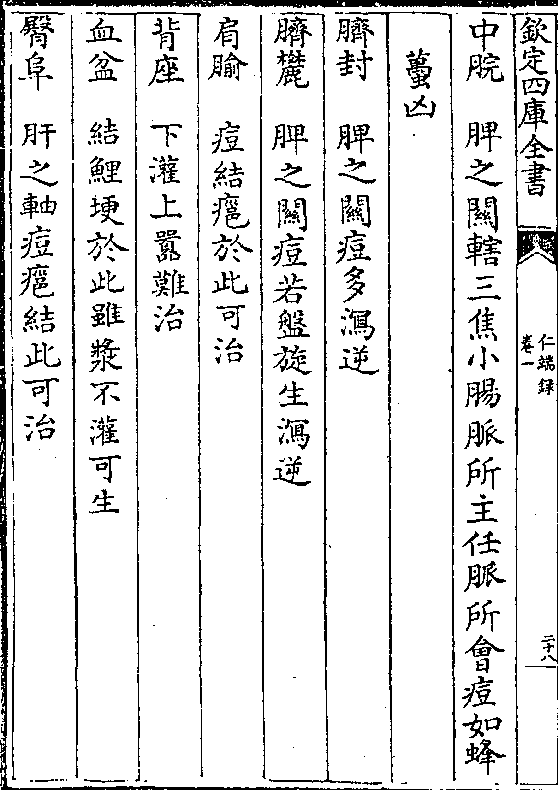 欽定四庫全書
仁端録
卷一
二十八
中脘　脾之關轄三焦小腸脈所主任脈所會痘如蜂
蠆凶
臍封　脾之關痘多瀉逆
臍麓　脾之關痘若盤旋生瀉逆
肩腧　痘結癍於此可治
背座　下灌上罨難治
血盆　結鯉埂於此雖漿不灌可生
臀阜　肝之軸痘癍結此可治